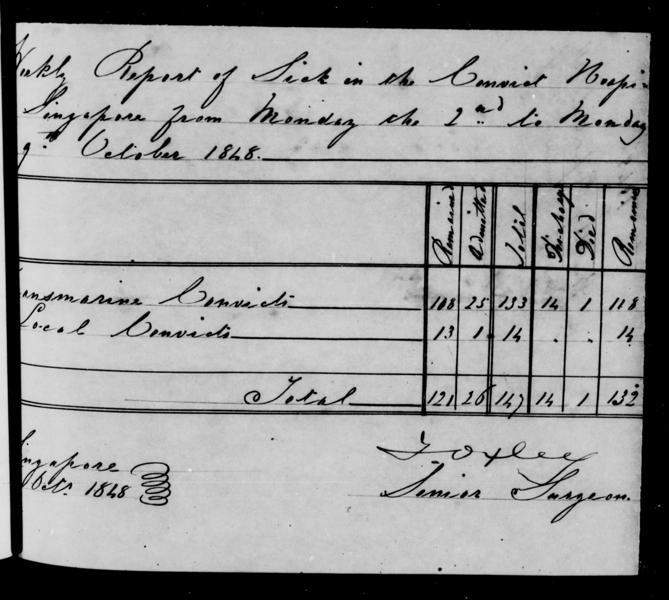 Weekly Report of Sick in the Convict Hospi-
Singapore from Monday the 2nd to Monday
9th October 1848.
Remained Admitted Total Discharged Died Remaining
ansmarine Convicts 108 25 133 14 1 118
Local Convicts 13 1 14 . . 14
Total 121 26 147 14 1 132
ingapore
Octr. 1848
Senior Surgeon.